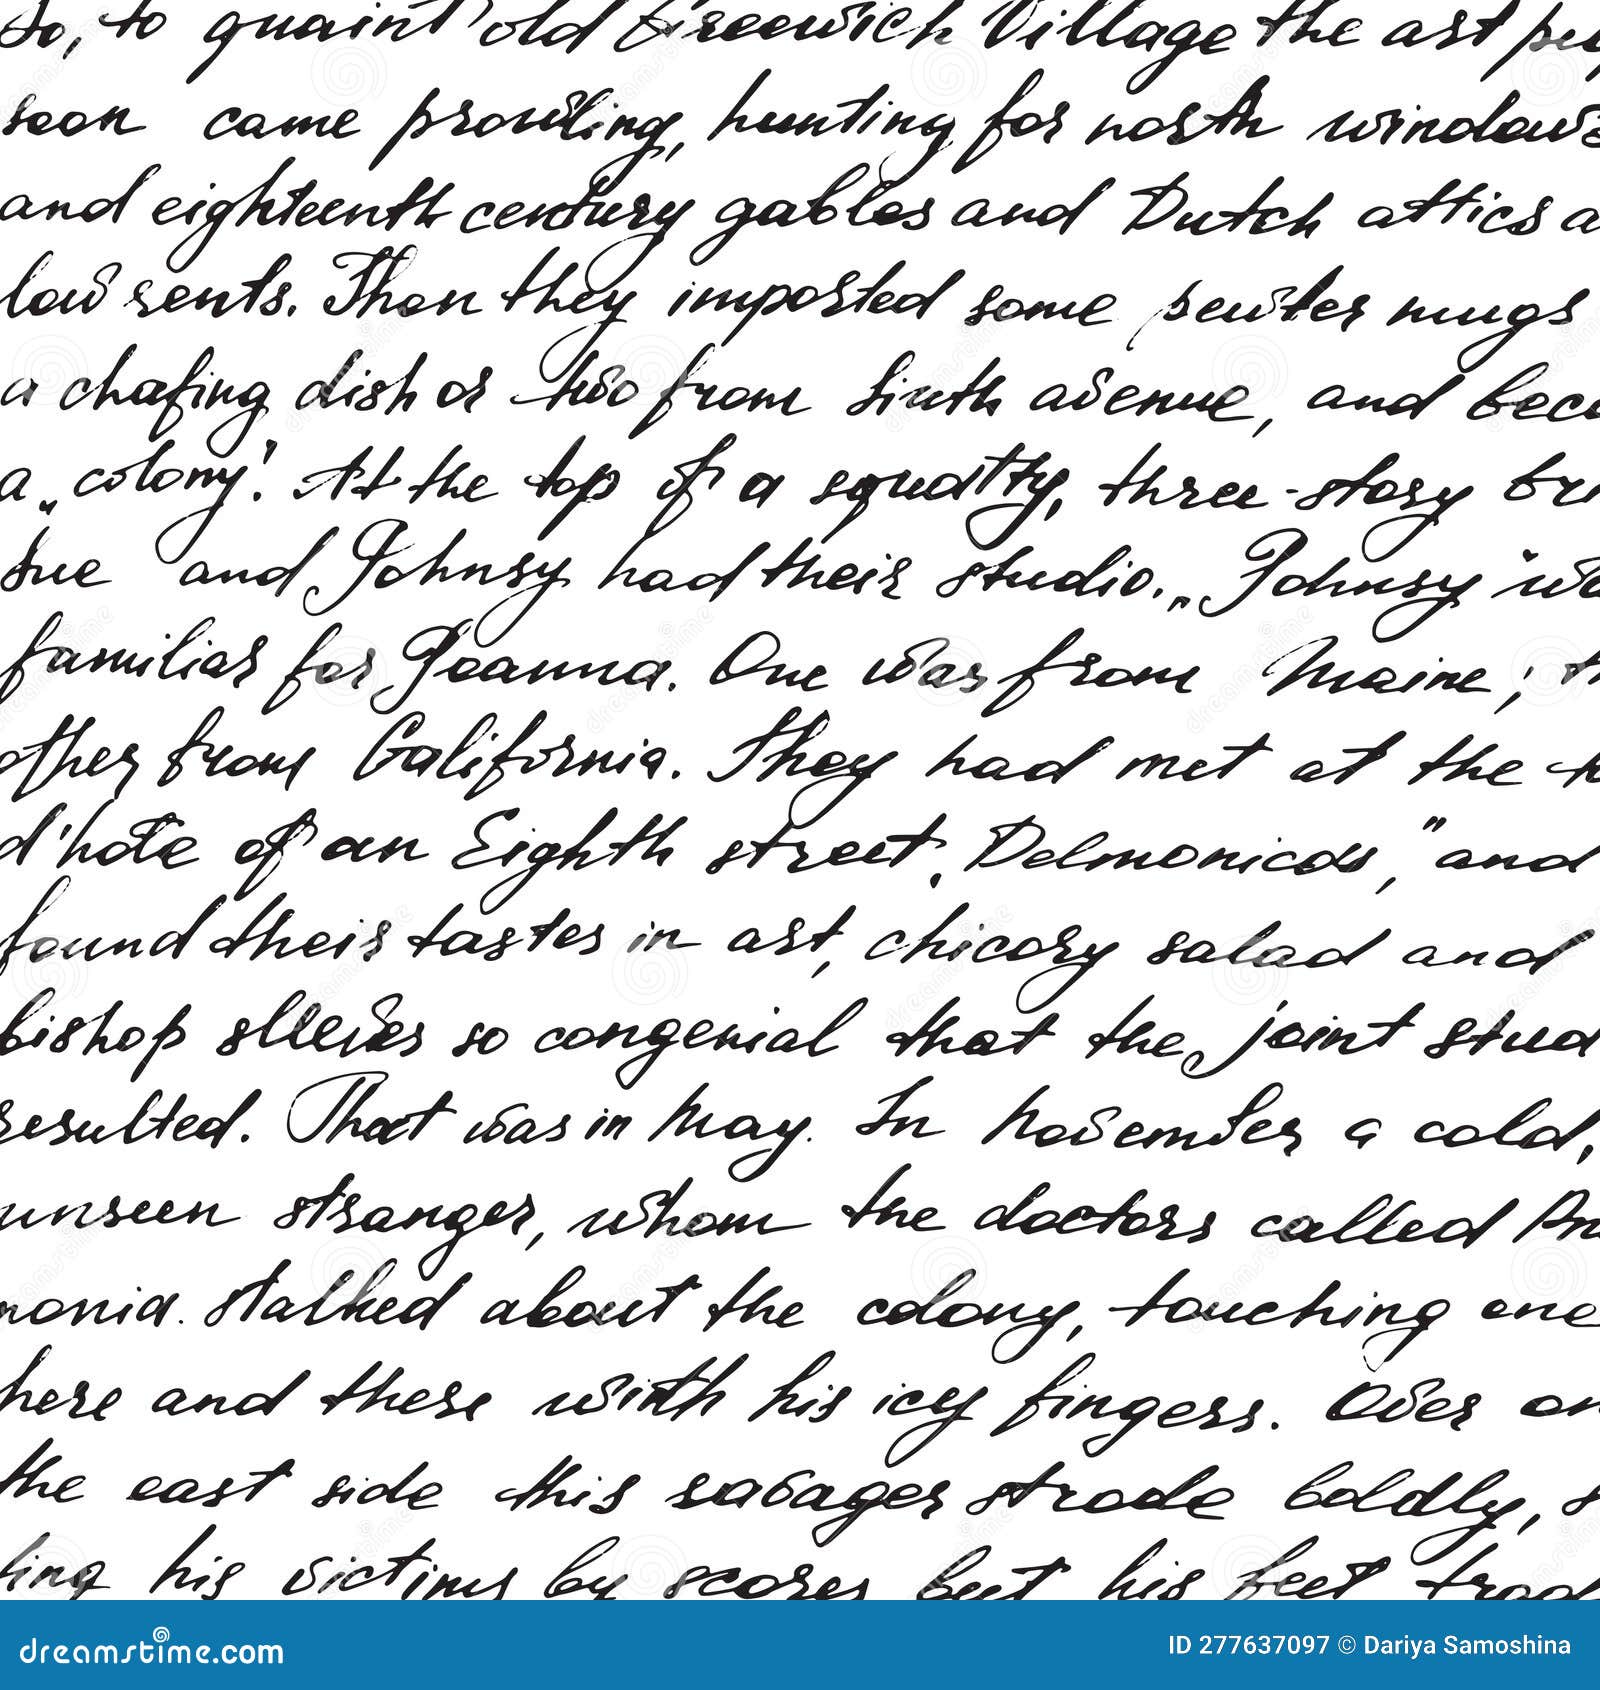 So, to quaint old Greewich Village the art peop
soon came prowling, hunting for north windows
and eighteenth century gables and Dutch attics a
low rents. Then they imported some pewter mugs
a chafing dish or two from Sixth avenue, and beco
a „colony". At the top of a squatty, three-story bri
Sue and Johnsy had their studio. „Johnsy" wa
familiar for Joanna. One was from Maine; th
other from California. They had met at the t
d'hote of an Eighth street „Delmonicos," and
found their tastes in art, chicory salad and
bishop sleeves so congenial that the joint stud
resulted. That was in May. In November a cold,
unseen stranger, whom the doctors called Pn
monia. stalked about the colony, touching one
here and there with his icy fingers. Over on
the east side this savager strode boldly, s
ting his victims by scores but his feet trod
dreamstime.com
ID 277637097 © Dariya Samoshina